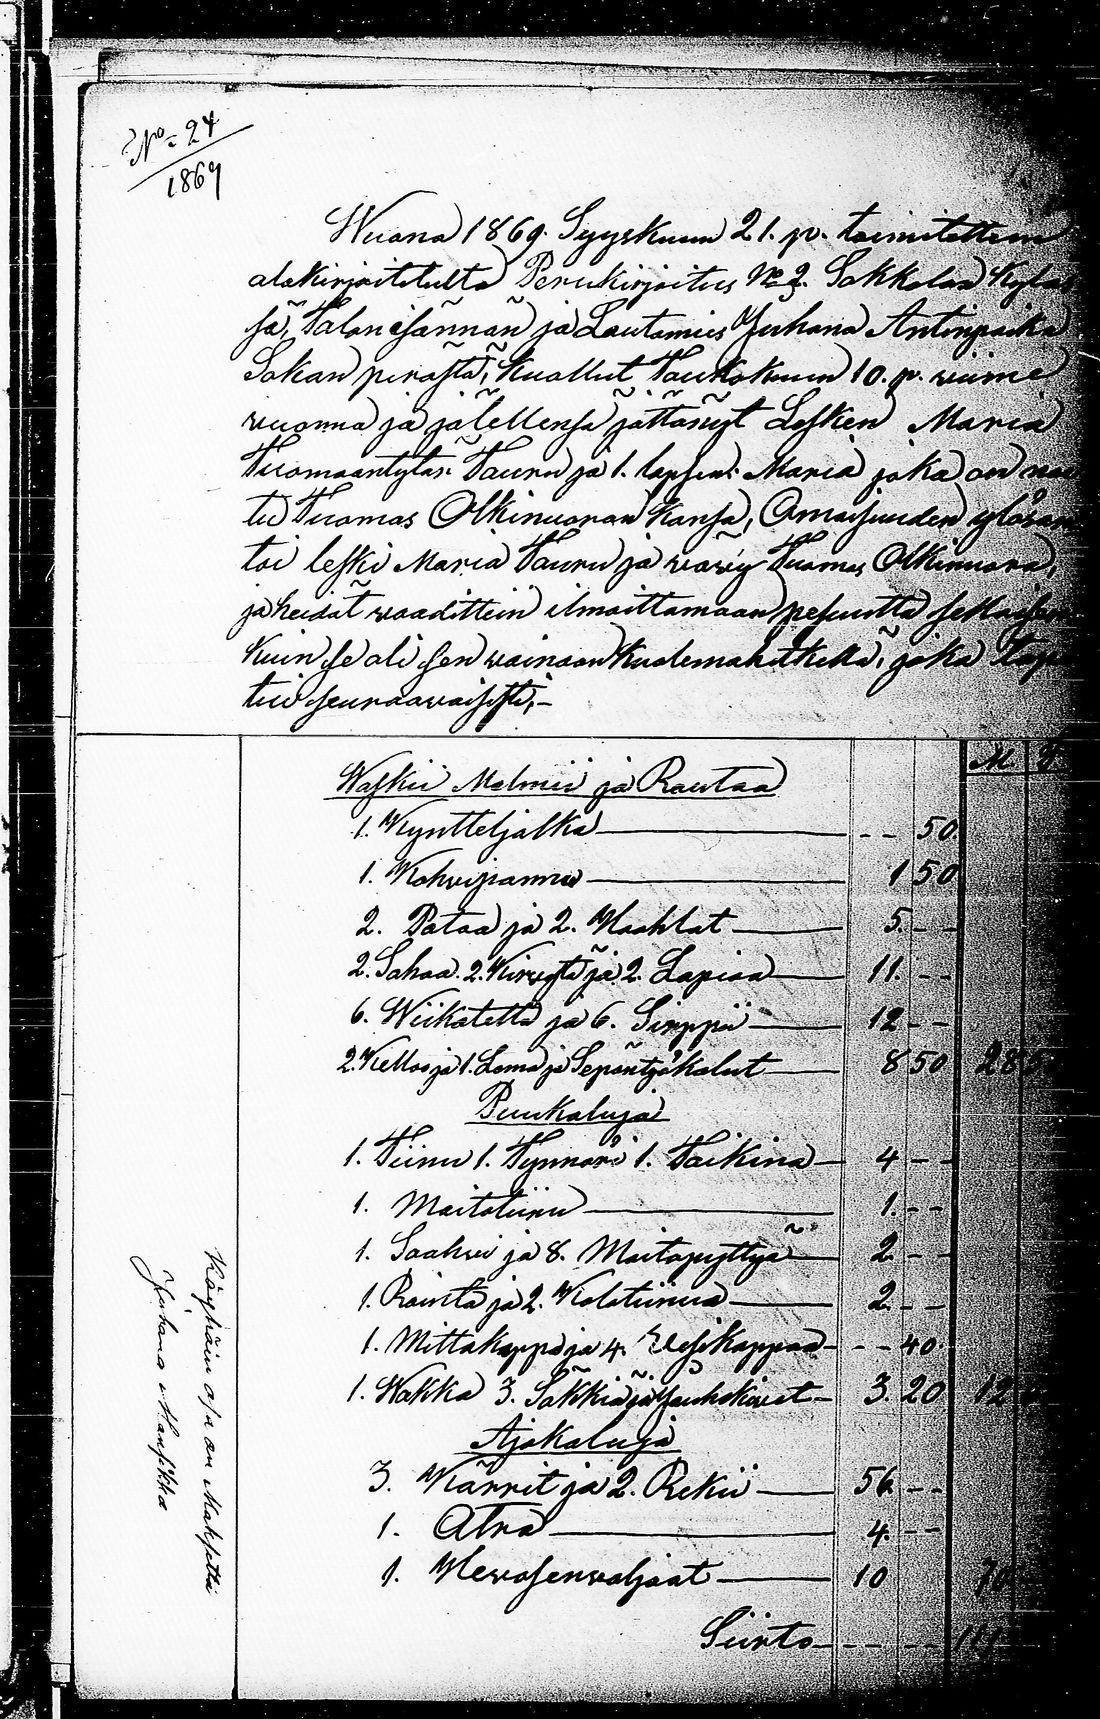 No 24
1869
Wuona 1869. Syyskuun 21. p. toimitettiin
alakirjoitetulta Perukirjoitus No 2. Sakkolan Kyläs
sä, Talon isännän ja Lautamies Juhana Antinpoika
Sakan perästä, Kuollut Toukokuun 10. p. viime
vuonna ja jälellensä jättänyt Lesken Maria
Tuomaantytär Tauru ja 1. lapsen: Maria joka on nai
tu Tuomas Olkinuoran kansa, Omaisuuden ylösan
toi leski Maria Tauru ja vävy Tuomas Olkinuora,
ja heidät vaadittiin ilmoittamaan pesuutta sellaisen
kuin se oli sen vainaan kuolemahetkellä, joka tapa
tui seuraavaisesti,-
M.
Waskii Malmii ja Rautaa
1. Kyntteljalka -- 50.
1. Kohvipannu 1 50
2. Pataa ja 2. Haahlat 5. --
2. Sahaa. 2. Kirvestä ja 2. Lapiaa 11. --
6. Wiikatetta ja 6. Sirppii 12 --
2. Kelloo ja 1. Loma ja Sepäntyökalut 8 50 28 5
Puukaluja
1. Tiinu 1. Tynnöri 1. Taikina 4 --
1. Maitotiinu 1. --
1. Saahvi ja 8. Maitopyttyä 2 --
1. Rainta ja 2. Kalatiinua 2. --
1. Mittakappa ja 4. Vesikappaa -- 40.
1. Wakka 3. Säkkiä ja Jauhokivet 3. 20 12
Ajokaluja
3. Kärrit ja 2. Rekii 56 --
1. Atra 4. --
1. Hevosenvaljaat 10 70
Siirto --- 111
Käyhäin osa on Maksettu
Juhana Mansikka